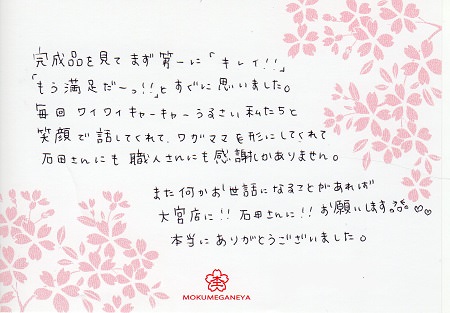 完成品を見てまず第一に「キレイ!!」
「もう満足だーっ!!」とすぐに思いました。
毎回ワイワイキャーキャーうるさい私たちと
笑顔で話してくれて、ワガママを形にしてくれて
石田さんにも職人さんにも感謝しかありません。
また何かお世話になることがあれば
大宮店に!!石田さんに!!お願いします。
本当にありがとうございました。
MOKUMEGANEYA